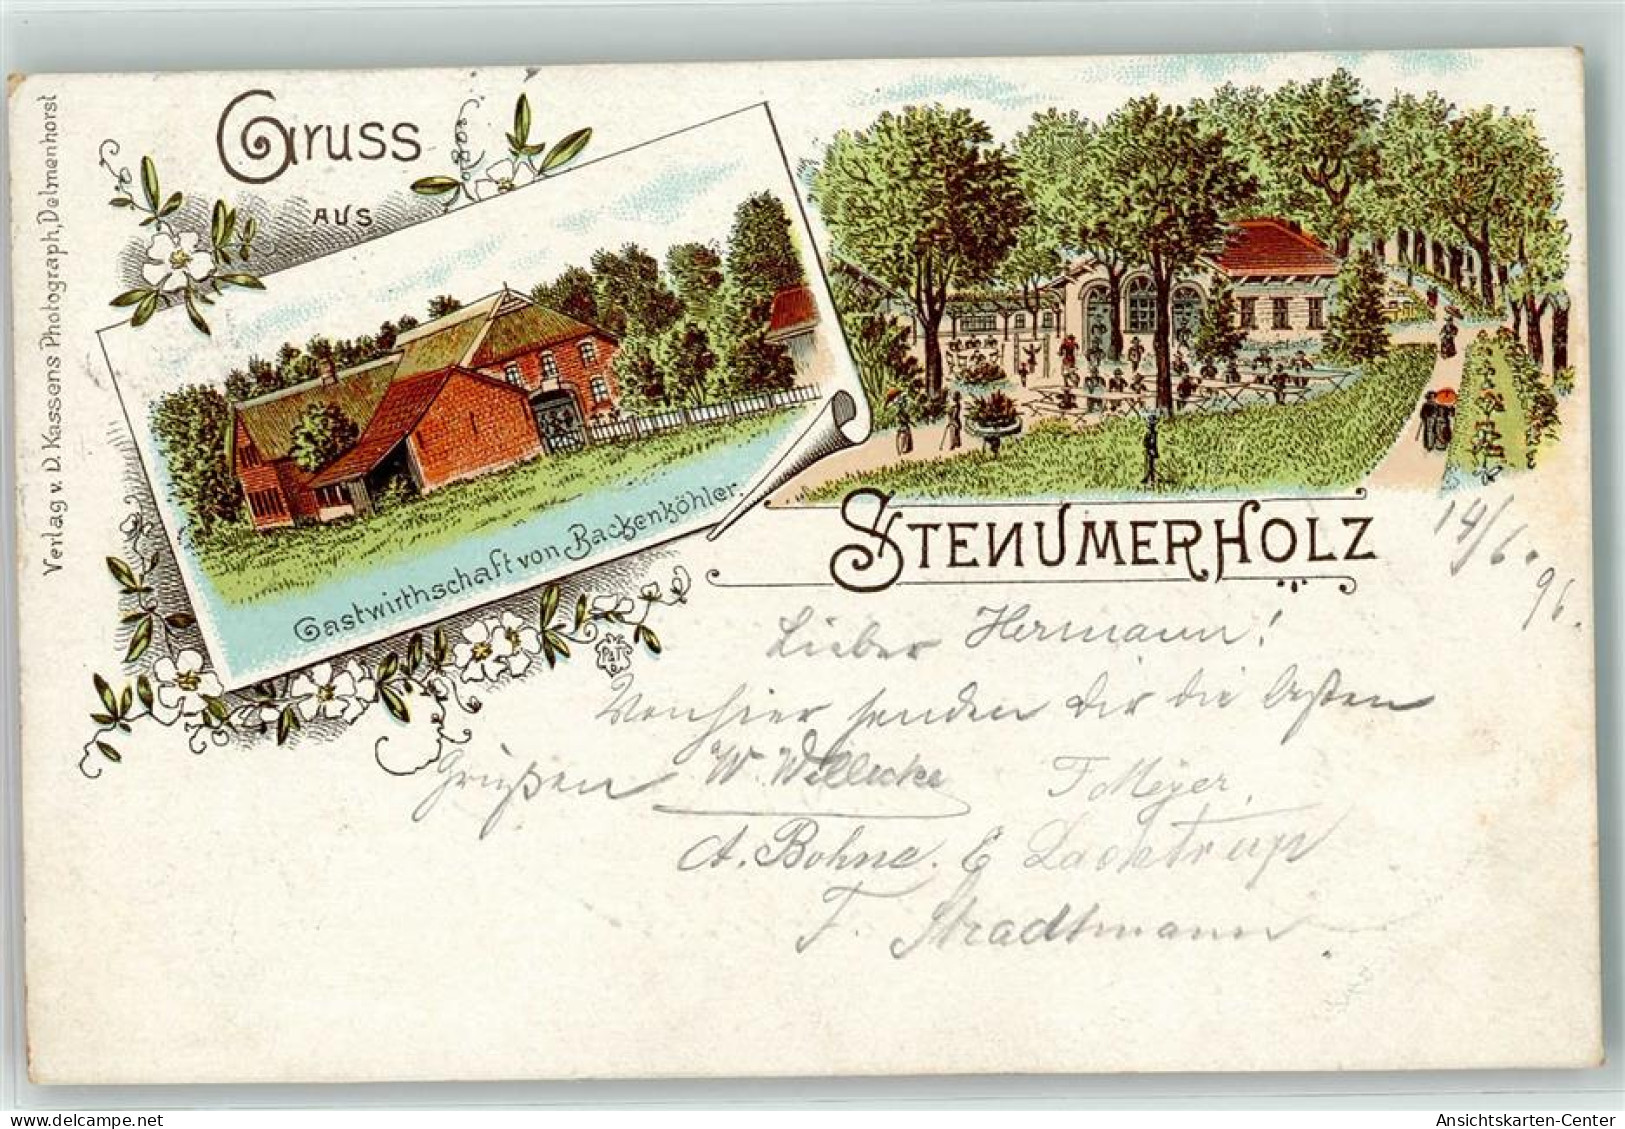 Verlag v. D. Kassens Photograph, Delmenhorst
Gruss
aus
Gastwirthschaft von Backenköhler.
Stenumerholz
14/6. 96.
Lieber Hermann!
Von hier senden dir die besten
Grüßen W. Willecke F Meyer.
A. Bohne. E
F. Stradtmann.
Ansichtskarten-Center